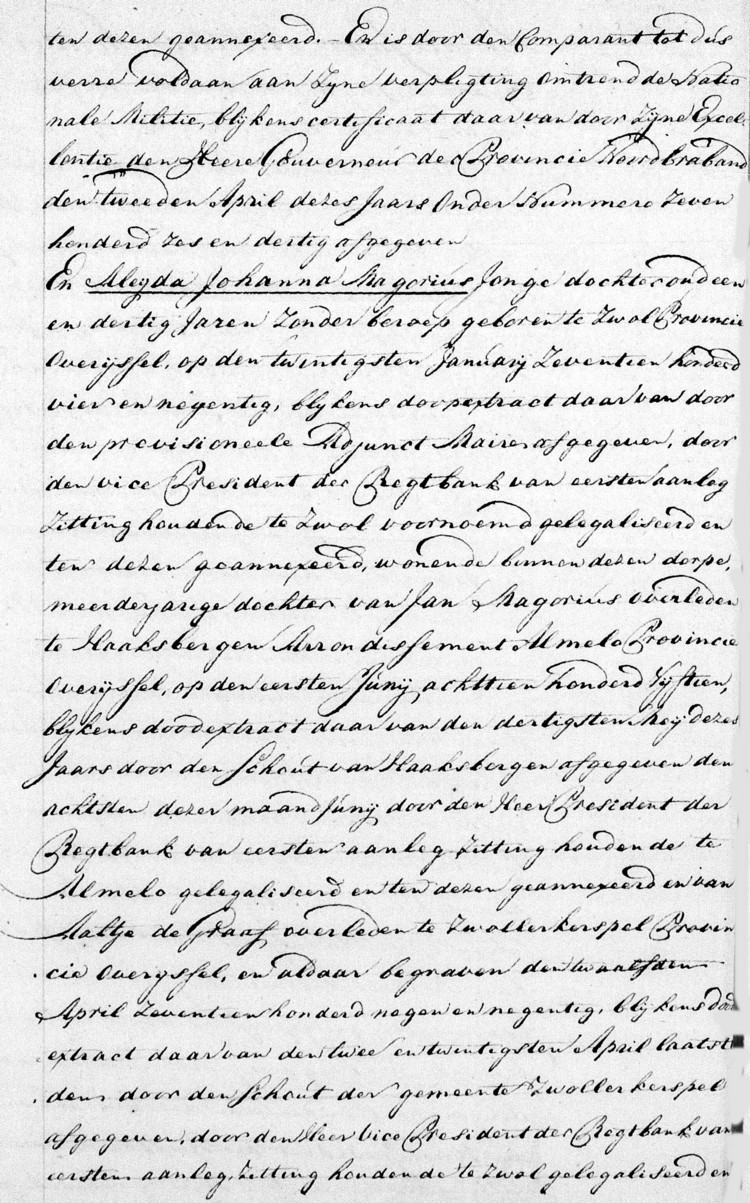 ten dezen geannexeerd. – En is door den Comparant tot dus
verre voldaan aan Zyne verpligting omtrend de Natio
nale Militie, blijkens certificaat daar van door Zyne Excel-
lentie den Heere Gouverneur der Provincie Noordbraband
den tweeden April dezes Jaars onder Nummero Zeven
honderd zes en dertig afgegeven
En Aleyda Johanna Magorius Jonge dochter oud een
en dertig Jaren Zonder beroep geboren te Zwol Provincie
Overijssel, op den twintigsten January Zeventien honderd
vier en negentig, blijkens doopextract daar van door
den provisioneele Adjunct Maire afgegeven, door
den vice President der Regtbank van eersten aanleg
Zitting houdende te Zwol voornoemd gelegaliseerd en
ten dezen geannexeerd, wonende binnen dezen dorpe,
meerderjarige dochter van Jan Magorius overleden
te Haaksbergen Arrondissement Almelo Provincie
Overijssel, op den eersten Junij achttien honderd Vyftien,
blijkens doodextract daar van den dertigsten Mey dezes
Jaars door den Schout van Haaksbergen afgegeven den
achtsten dezer maand Junij door den Heer President der
Regtbank van eersten aanleg Zitting houdende te
Almelo gelegaliseerd en ten dezen geannexeerd en van
Aaltje de Graaf overleden te Zwollerkerspel Provin
cie Overyssel, en aldaar begraven den twaalfden
April Zeventien honderd negen en negentig, blijkens dood
extract daar van den twee en twintigsten April laatst
den door den Schout der gemeente Zwollerkerspel
afgegeven, door den Heer Vice President der Regtbank van
eersten aanleg, Zitting houdende te Zwol gelegaliseerd en